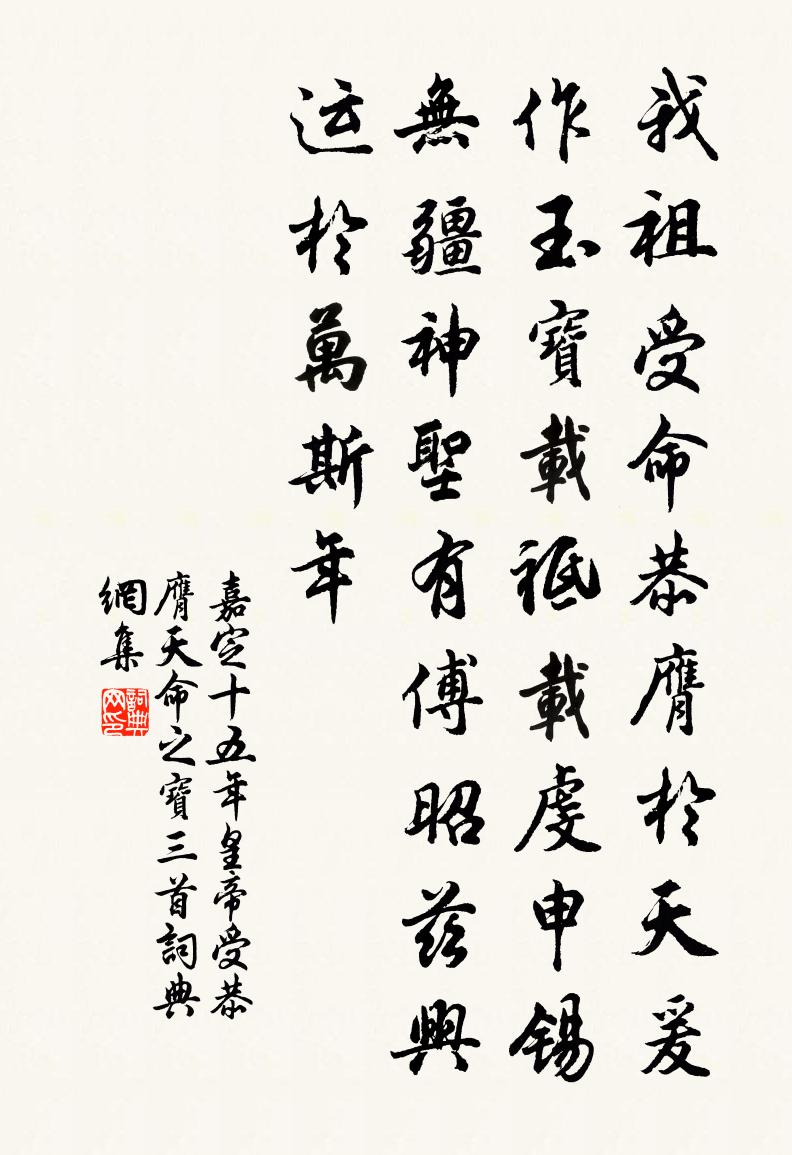 我祖受命恭膺於天爰
作玉寶載祗載虔申錫
無疆神聖有傅昭茲興
运於萬斯年
嘉定十五年皇帝受恭
膺天命之寶三首詞典
網集
詞典
网印